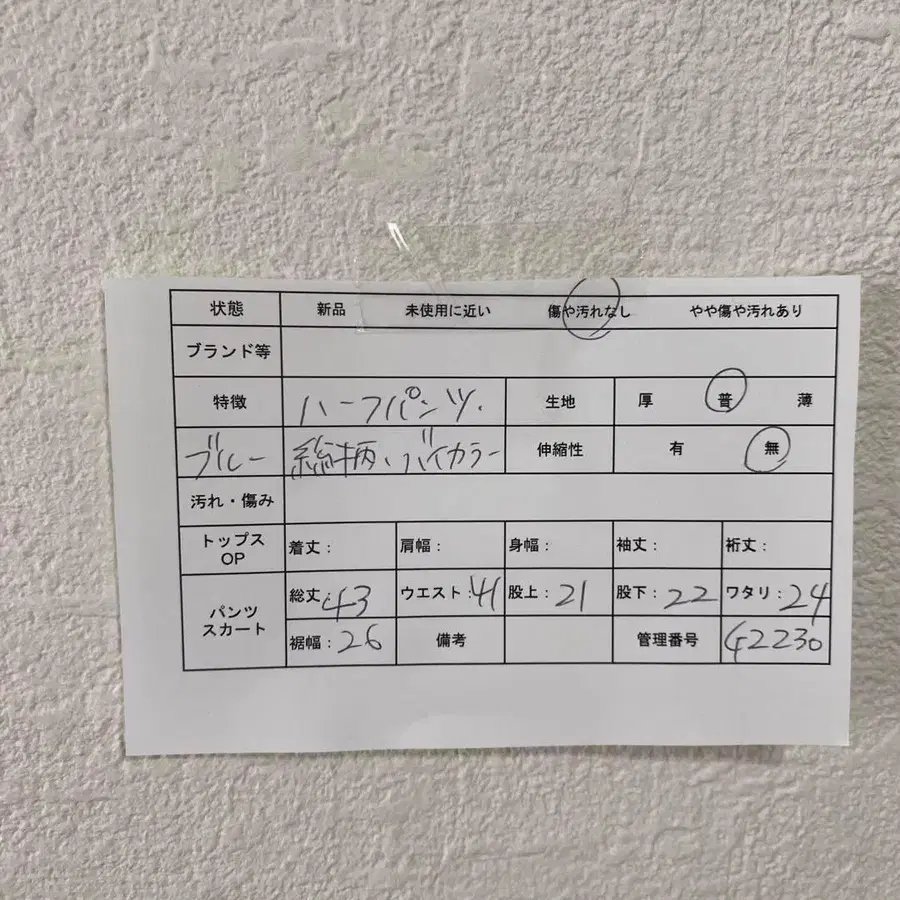 状態 新品 未使用に近い 傷や汚れなし やや傷や汚れあり
ブランド等
特徴 ハーフパンツ. 生地 厚 普 薄
ブルー 総柄、バイカラー 伸縮性 有 無
汚れ・傷み
トップス OP 着丈: 肩幅: 身幅: 袖丈: 裄丈:
パンツ スカート 総丈:43 ウエスト:41 股上:21 股下:22 ワタリ:24
裾幅:26 備考 管理番号 G2230